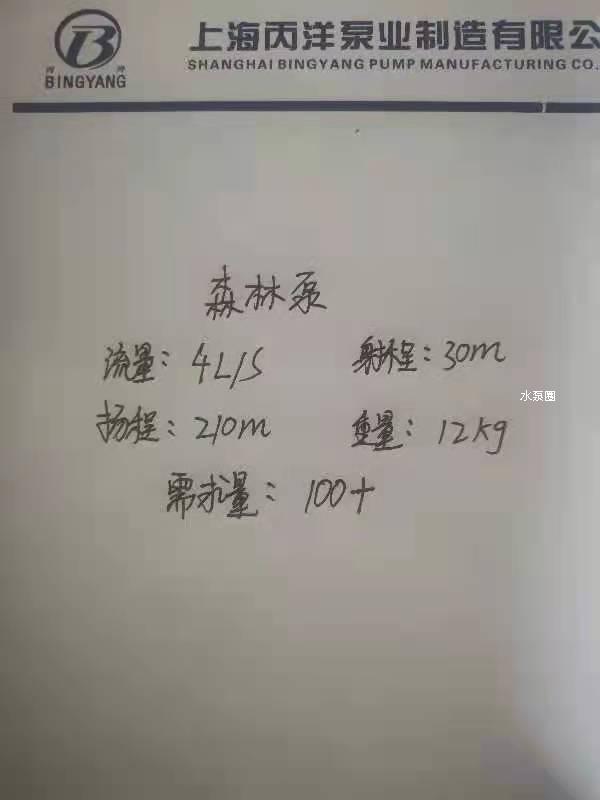 上海丙洋泵业制造有限公
SHANGHAI BINGYANG PUMP MANUFACTURING CO.
B
BINGYANG
森林泵
流量：4L/S 射程：30m
水泵圈
扬程：210m 重量：12kg
需求量：100+